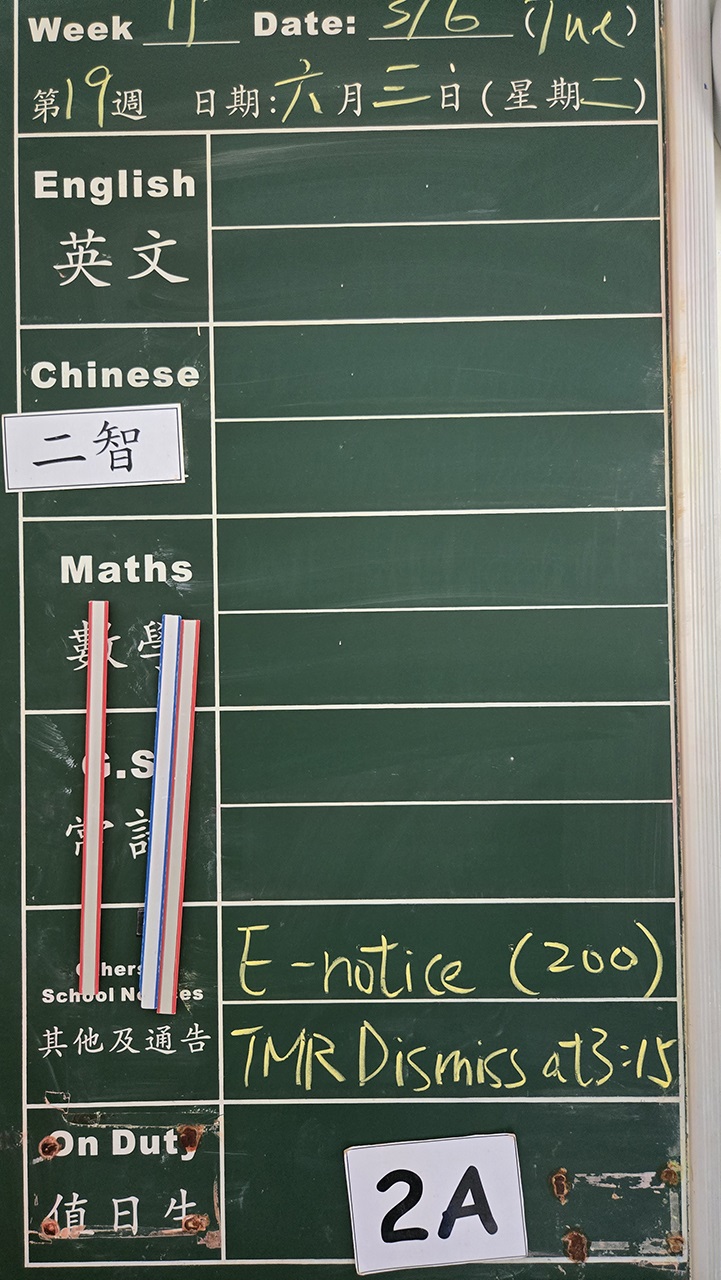 Week Date: 3/6 (Tue)
第19週 日期:六月三日(星期二)
English
英文
Chinese
二智
Maths
數學
G.S
常
Others
School Notices
E-notice (200)
其他及通告
TMR Dismiss at 3:15
On Duty
值日生
2A